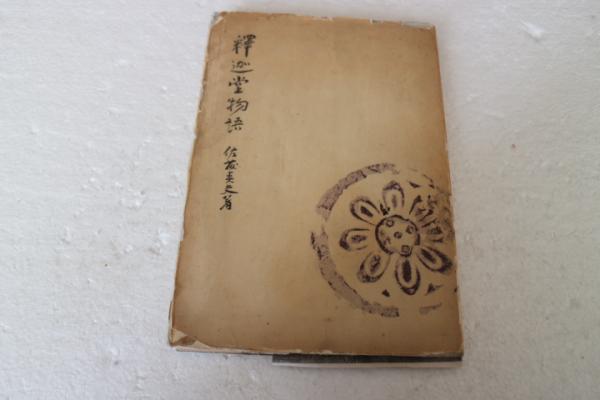 釋迦堂物語
佐藤春夫著